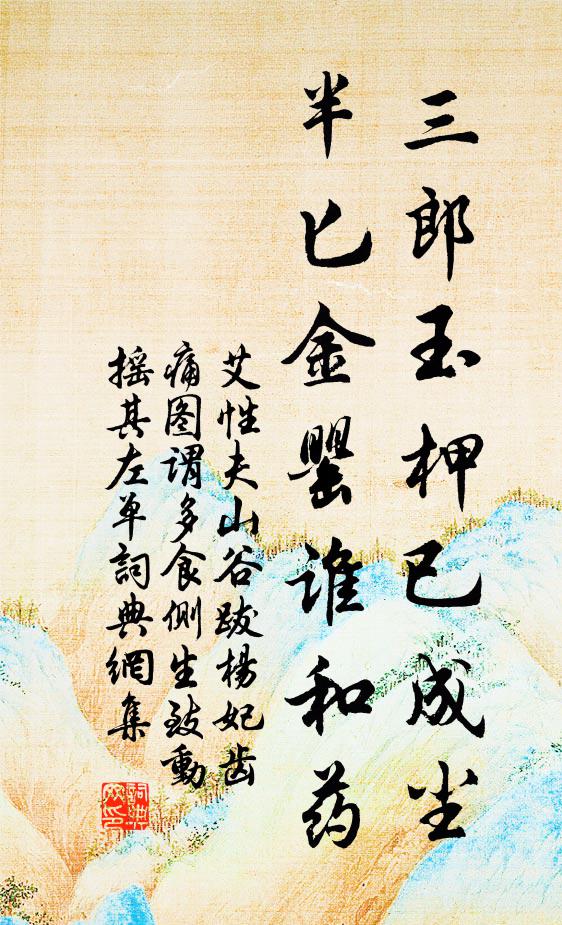 三郎玉柙已成尘
半匕金罂谁和药
艾性夫山谷跋楊妃齿
痛图谓多食侧生致動
摇其左車詞典網集